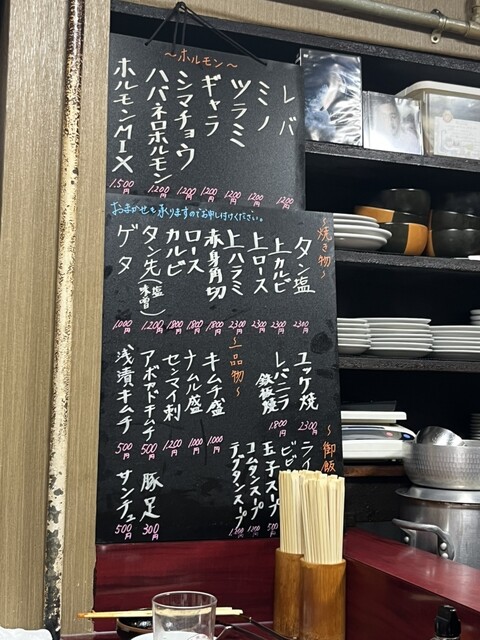 〜ホルモン〜
レバ 1200円
ミノ 1200円
ツラミ 1200円
ギャラ 1200円
シマチョウ 1200円
ハバネロホルモン 1200円
ホルモンMIX 1,500円
おまかせも承りますのでお申し付けください。
〜焼き物〜
タン塩 2300円
上カルビ 2300円
上ロース 2300円
上ハラミ 2300円
赤身角切 1800円
ロース 1800円
カルビ 1800円
タン先(塩味噌) 1,200円
ゲタ 1000円
ユッケ焼 2300円
レバニラ鉄板焼 1,800円
〜一品物〜
キムチ盛 1000円
ナムル盛 1000円
センマイ刺 1,200円
アボカドキムチ 500円
浅漬キムチ 500円
豚足 300円
サンチュ 500円
〜御飯
ライ
ビビ
玉子スープ 500円
コムタンスープ
テッタンスープ